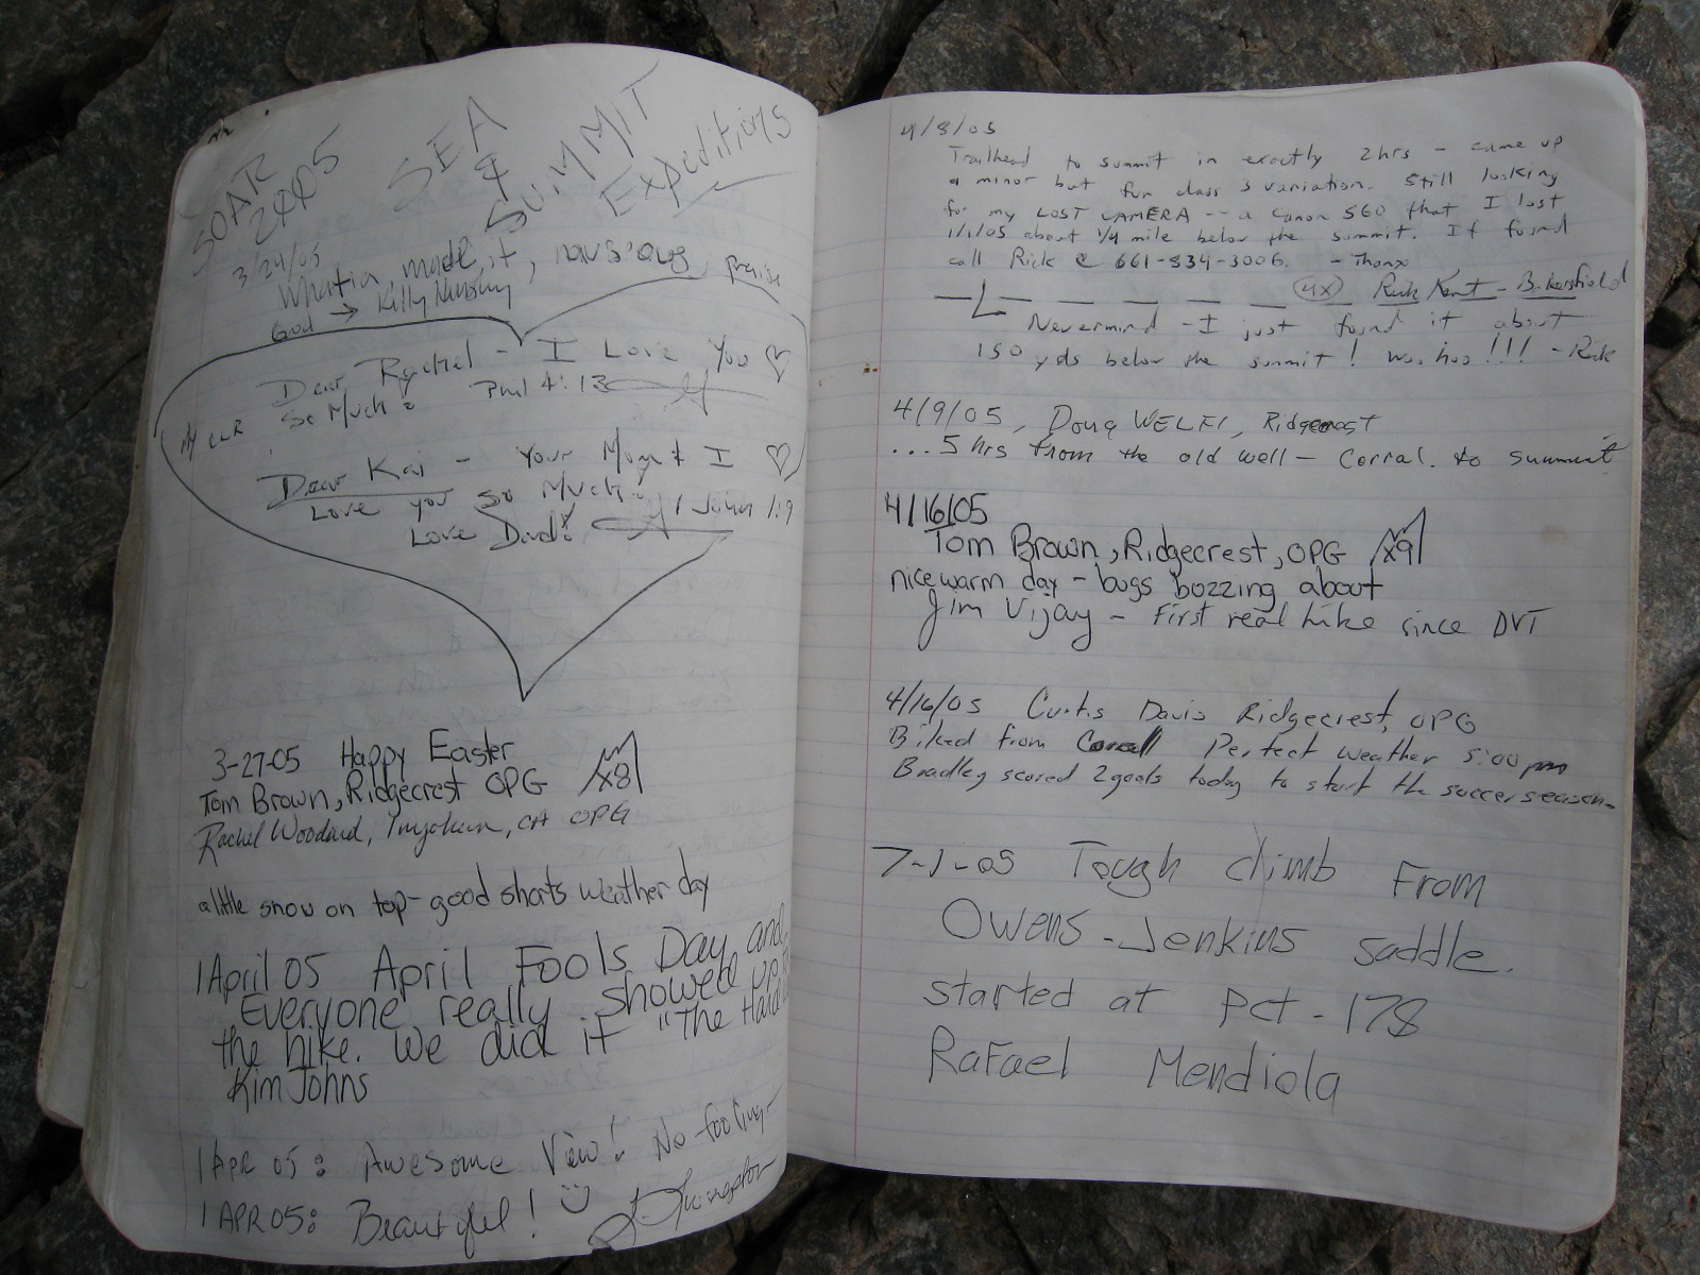 SOAR
2005
SEA
&
SUMMIT
Expeditions
3/24/05
made it,
praise
God → Kelly
Dear Rachel - I Love You ♡
So Much! Phil 4:13
Dear Kai - Your Mom & I ♡
Love you so Much! 1 John 1:9
Love Dad!
3-27-05 Happy Easter
Tom Brown, Ridgecrest OPG x8
Rachel Woodard, Inyokern, CA OPG
a little snow on top - good shorts weather day
1 April 05 April Fools Day and
Everyone really showed up
the hike. We did it "The Hard
Kim Johns
1 APR 05: Awesome View! No fooling -
1 APR 05: Beautiful!
4/8/05
Trailhead to summit in exactly 2hrs - came up
a minor but fun class 3 variation. Still looking
for my LOST CAMERA -- a Canon S60 that I lost
1/1/05 about 1/4 mile below the summit. If found
call Rick @ 661-834-3006. - Thanx
4x Rick Kent - Bakersfield
Nevermind - I just found it about
150 yds below the summit! Woohoo!!! - Rick
4/9/05, Doug WELFI, Ridgecrest
...5 hrs from the old well - Corral. to summit
4/16/05
Tom Brown, Ridgecrest, OPG x9
nice warm day - bugs bozzing about
Jim Vijay - First real hike since DVT
4/16/05 Curtis Davis Ridgecrest, OPG
Biked from Corral Perfect weather 5:00 pm
Bradley scored 2 goals today to start the soccer season.
7-1-05 Tough climb From
Owens-Jenkins saddle.
started at Pct-178
Rafael Mendiola